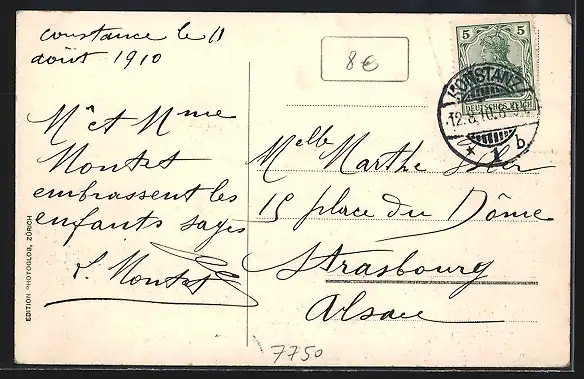 Constance le 11
août 1910
Mr et Mme
Montet
embrassent les
enfants sages
L. Montet
8€
5 5
DEUTSCHES REICH
KONSTANZ
12.8.10.
* 1 b
Melle Marthe
15 place du Dôme
Strasbourg
Alsace
7750
EDITION PHOTOGLOB, ZÜRICH